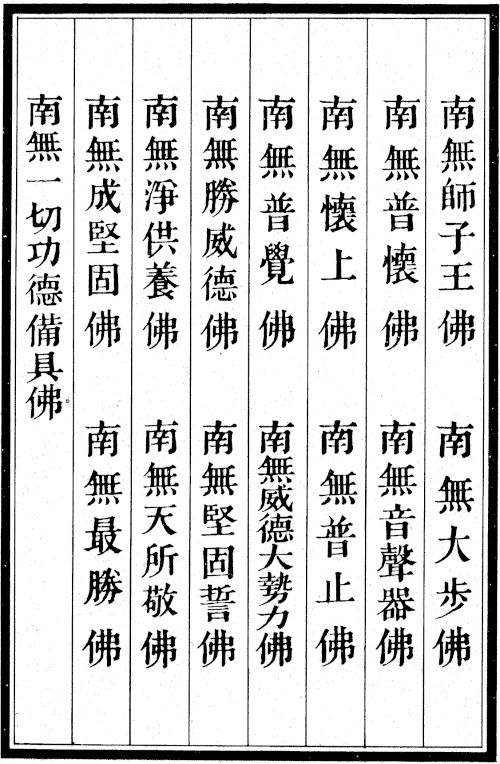 南無師子王佛 南無大步佛
南無普懷佛 南無音聲器佛
南無懷上佛 南無普止佛
南無普覺佛 南無威德大勢力佛
南無勝威德佛 南無堅固誓佛
南無淨供養佛 南無天所敬佛
南無成堅固佛 南無最勝佛
南無一切功德備具佛。